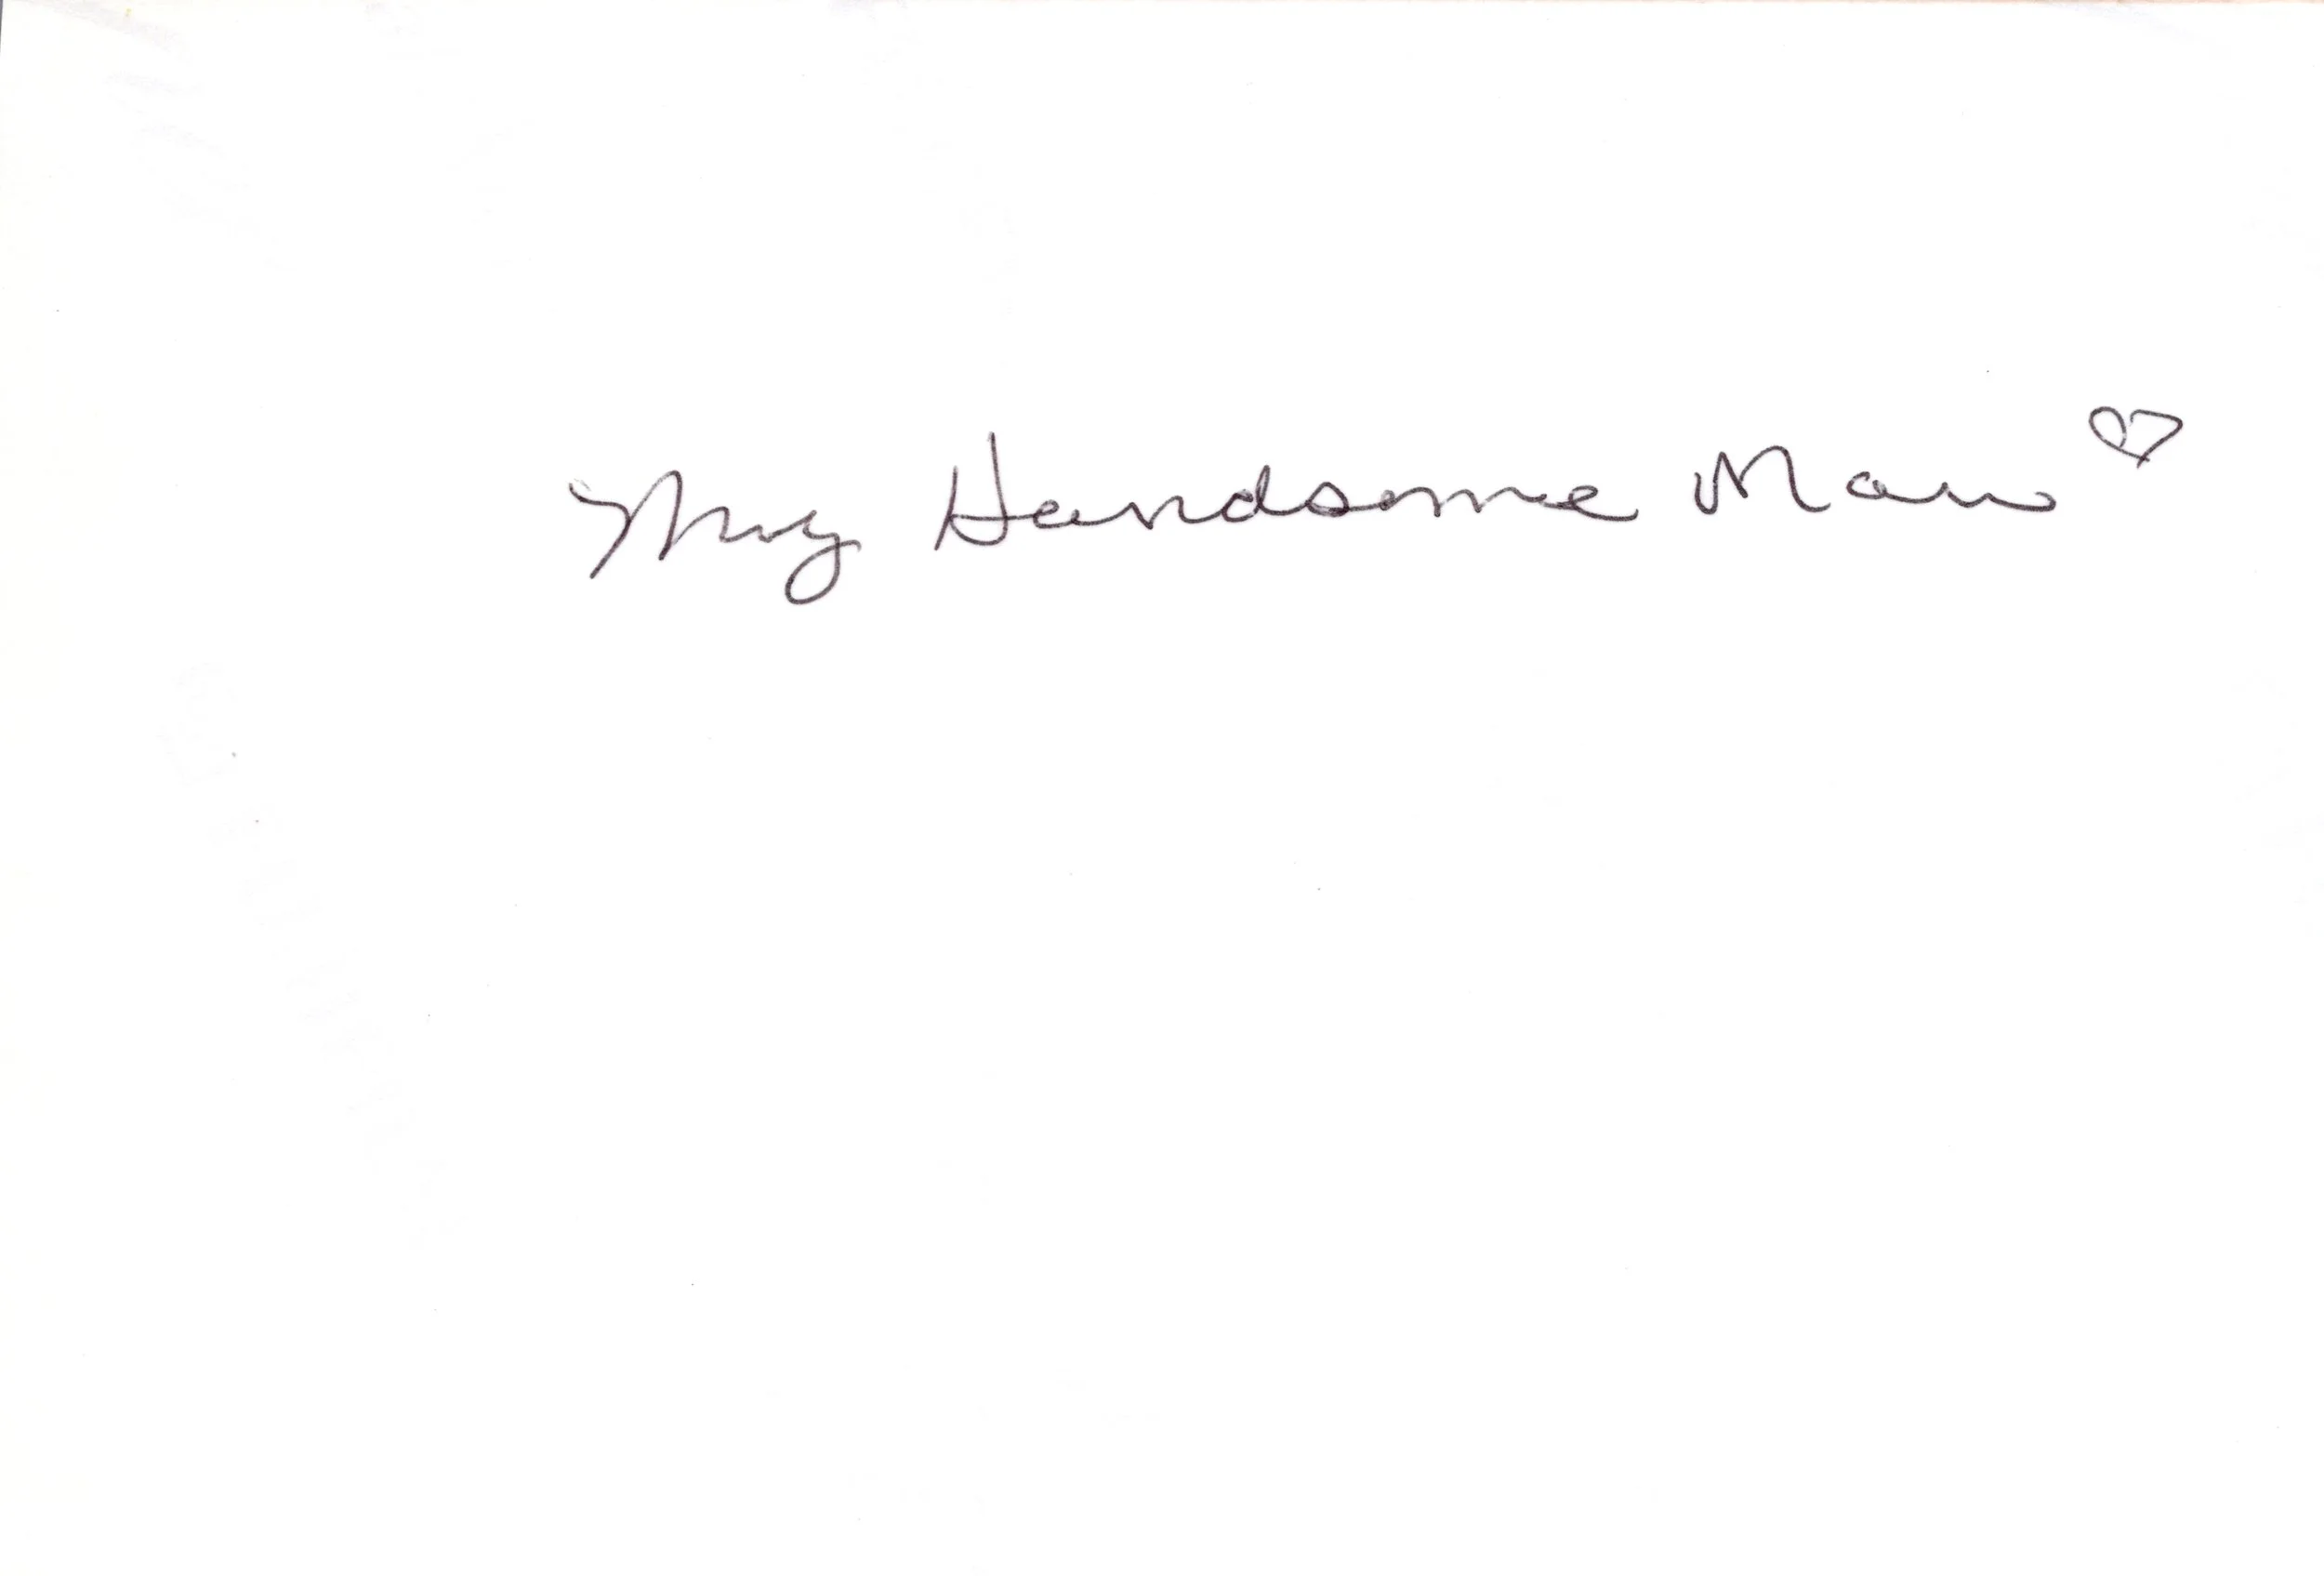 My Handsome Man ♡